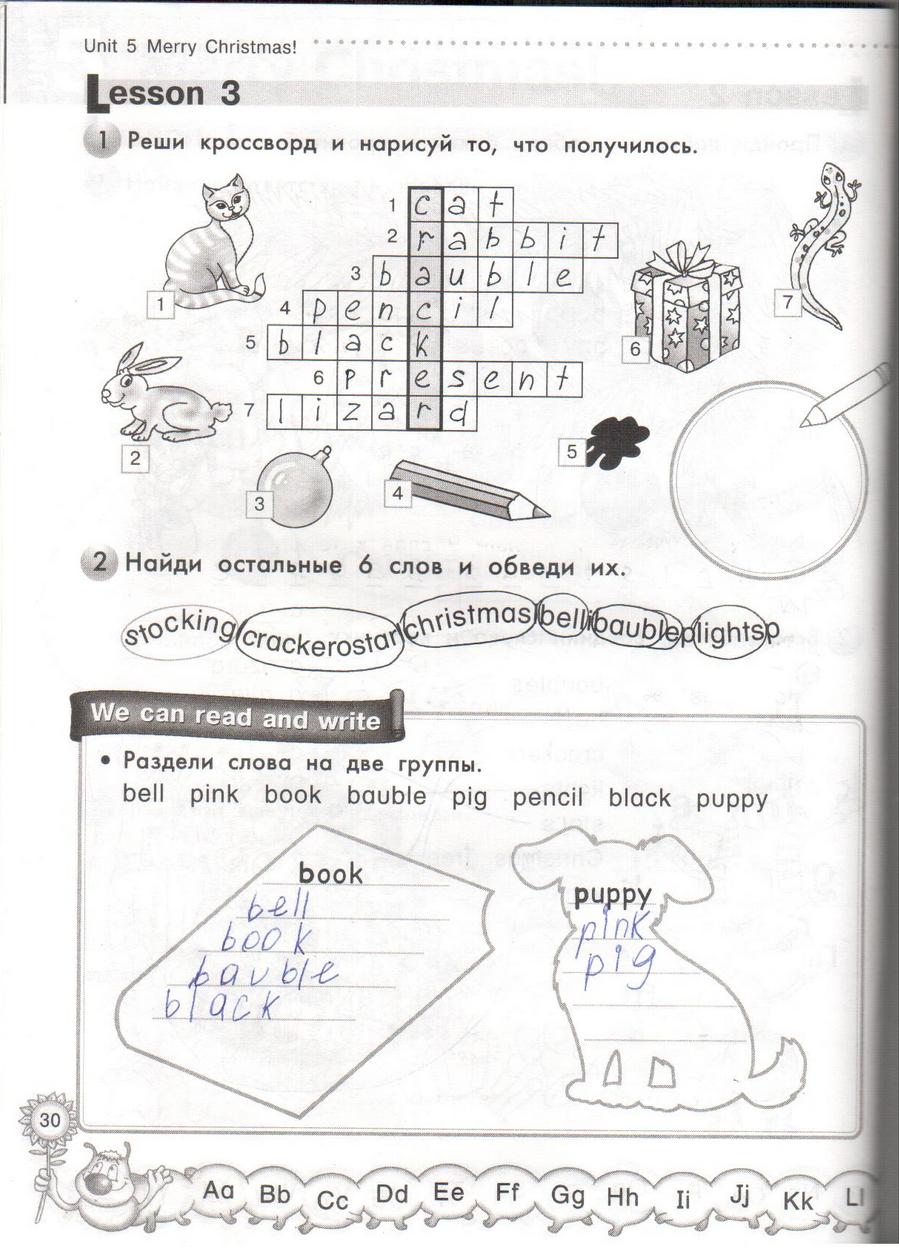 Unit 5 Merry Christmas!
Lesson 3
1 Реши кроссворд и нарисуй то, что получилось.
1 cat
2 rabbit
3 bauble
4 pencil
5 black
6 present
7 lizard
1
2
3
4
5
6
7
2 Найди остальные 6 слов и обведи их.
stockingcrackerostarchristmasbellibaubleplightsp
We can read and write
• Раздели слова на две группы.
bell pink book bauble pig pencil black puppy
book
bell
book
bauble
black
puppy
pink
pig
30
Aa Bb Cc Dd Ee Ff Gg Hh Ii Jj Kk Ll